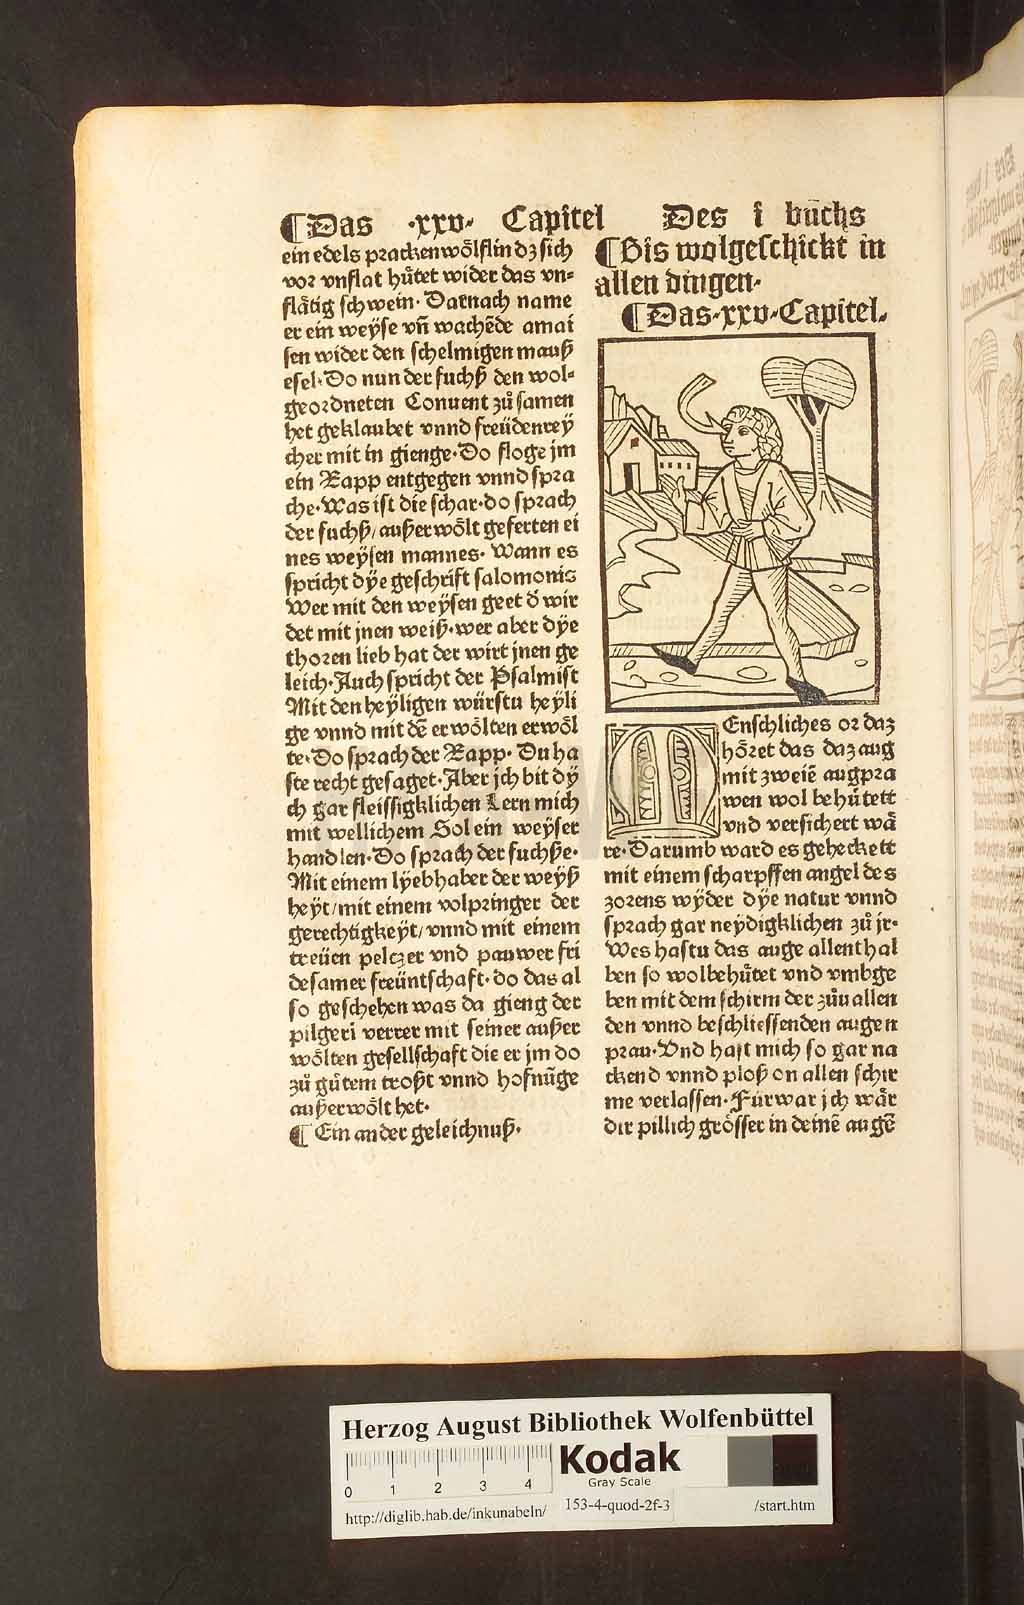 ¶Das ·xxv· Capitel Des i bůchs
ein edels prackenwoͤlflin dz sich
vor vnflat huͤtet wider das vn⸗
flaͤtig schwein· Darnach name
er ein weyse vn̄ wachēde amai
sen wider den schelmigen mauß
esel· Do nun der fuchß den wol⸗
geordneten Conuent zů samen
het geklaubet vnnd freüdenreÿ
cher mit in gienge· Do floge jm
ein Rapp entgegen vnnd spra
che· Was ist die schar· do sprach
der fuchß/ außerwoͤlt geferten ei
nes weysen mannes· Wann es
spricht dÿe geschrift salomonis
Wer mit den weÿsen geet d̄ wir
det mit jnen weiß· wer aber dÿe
thoren lieb hat der wirt jnen ge
leich· Auch spricht der Psalmist
Mit den heÿligen würstu heÿli
ge vnnd mit dē erwoͤlten erwoͤl
te· Do sprach der Rapp· Du ha
ste recht gesaget· Aber jch bit dÿ
ch gar fleissigklichen Lern mich
mit wellichem Sol ein weÿser
handlen· Do sprach der fuchße·
Mit einem lÿebhaber der weÿß
heÿt/ mit einem volpringer der
gerechtigkeÿt/ vnnd mit einem
treüen pelczer vnd pauwer fri
desamer freüntschaft· do das al
so geschehen was da gieng der
pilgeri verrer mit seiner außer
woͤlten gesellschaft die er jm do
zů gůtem troßt vnnd hofnūge
außerwoͤlt het·
¶ Ein ander geleichnuß·
¶Bis wolgeschickt in
allen dingen·
¶Das·xxv·Capitel·
MEnschliches or daz
hoͤret das daz aug
mit zweiē augpra
wen wol behuͤtett
vnd versichert waͤ
re· Darumb ward es geheckett
mit einem scharpffen angel des
zorens wÿder dÿe natur vnnd
sprach gar neÿdigklichen zů jr·
Wes hastu das auge allenthal
ben so wolbehuͤtet vnd vmbge
ben mit dem schirm der zůuallen
den vnnd beschliessenden augen
prau· Vnd hast mich so gar na
ckend vnnd ploß on allen schir
me verlassen· Fürwar jch waͤr
dir pillich groͤsser in deinē augē
Herzog August Bibliothek Wolfenbüttel
Kodak
Gray Scale
0 1 2 3 4
http://diglib.hab.de/inkunabeln/ 153-4-quod-2f-3 /start.htm